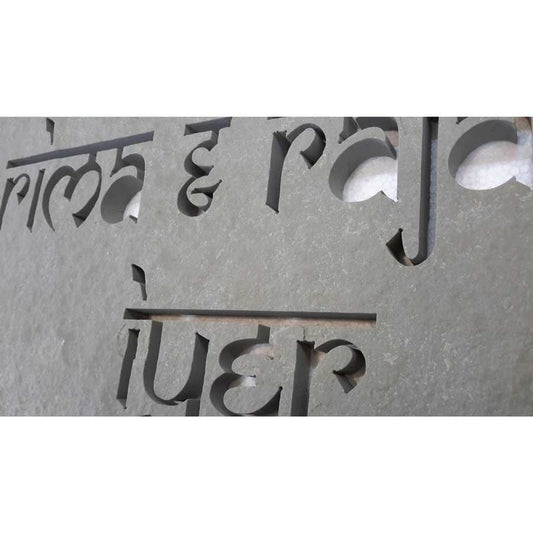 rima & raja
iyer